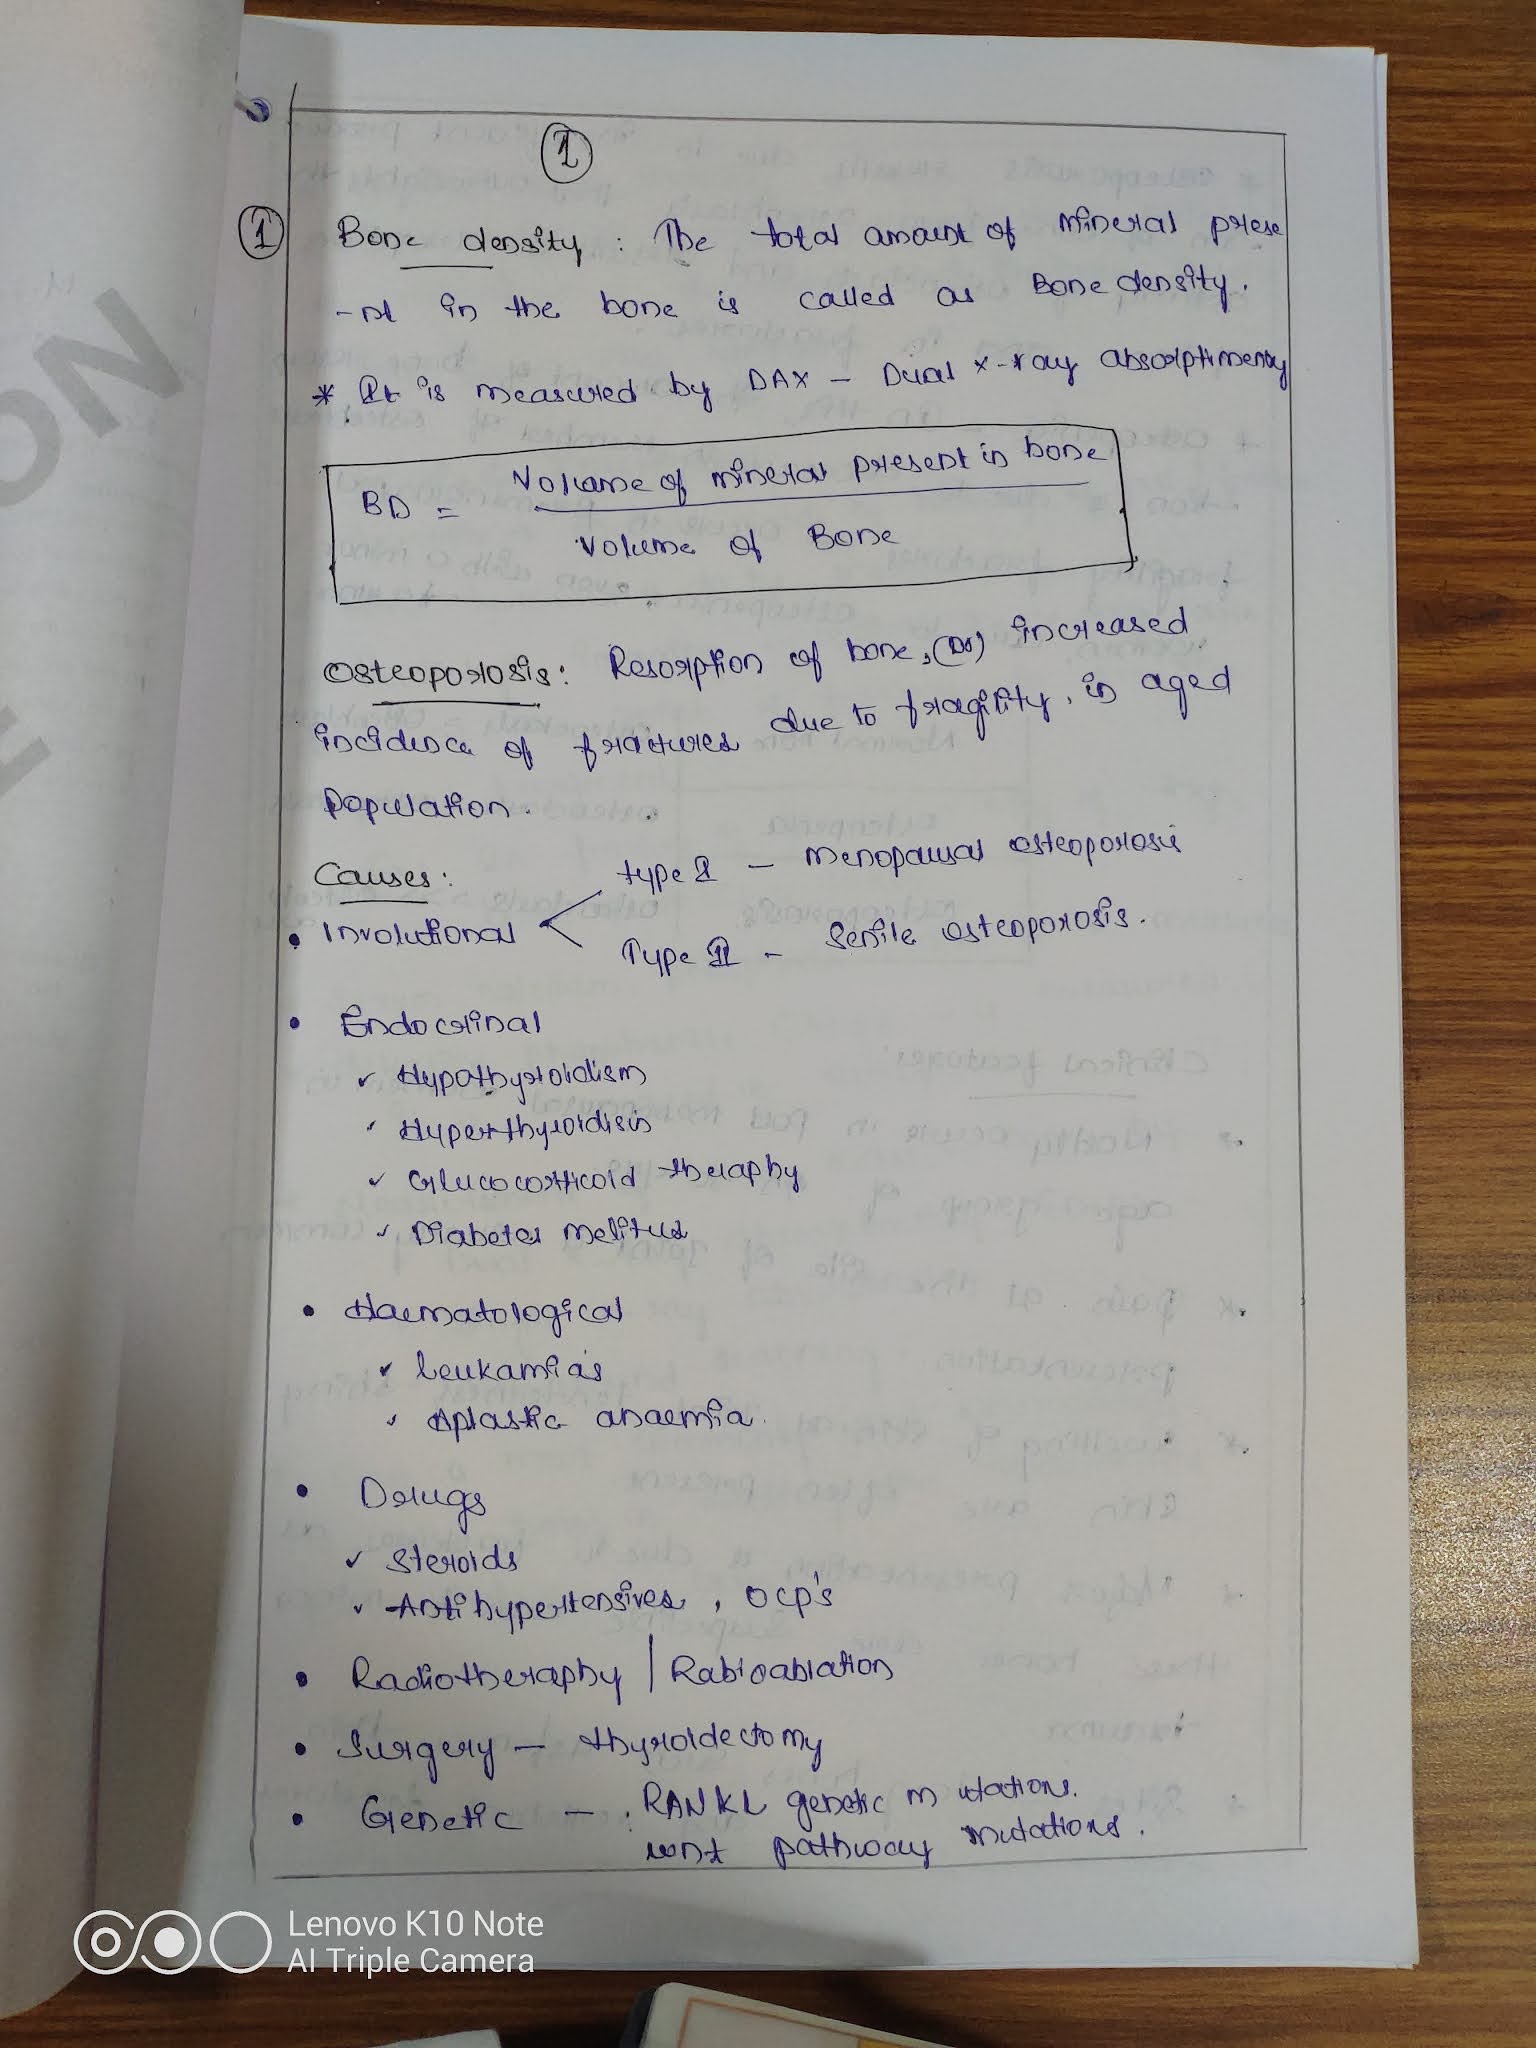 1
1 Bone density : The total amount of mineral prese
-nt in the bone is called as Bone density.
* It is measured by DAX - Dual x-ray absorptimenty
BD = Volume of mineral present in bone
Volume of Bone
Osteoporosis: Resorption of bone, (or) increased
incidence of fractures due to fragility, in aged
population.
Causes:
• Involutional
type I - Menopausal osteoporosis
Type II - Senile osteoporosis.
• Endocrinal
✓ Hypothyroidism
✓ Hyperthyroidisin
✓ Glucocorticoid theraphy
✓ Diabetes melitus
• Haematological
✓ leukamias
✓ Aplastic anaemia.
• Drugs
✓ Steroids
✓ Antihypertensives, OCP's
• Radiotheraphy | Rabioablation
• Surgery - thyroidectomy
• Genetic - RANKL genetic mutations.
wnt pathway mutations.
Lenovo K10 Note
AI Triple Camera
ON
E